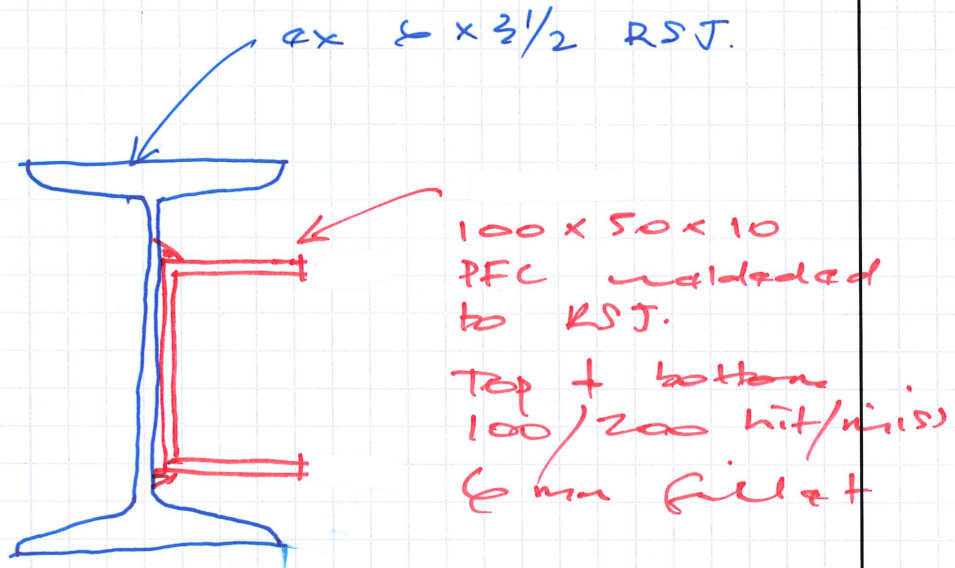 ex 6 x 3 1/2 RSJ.
100 x 50 x 10
PFC weldeded
to RSJ.
Top + bottom
100/200 hit/miss
6 mm fillet